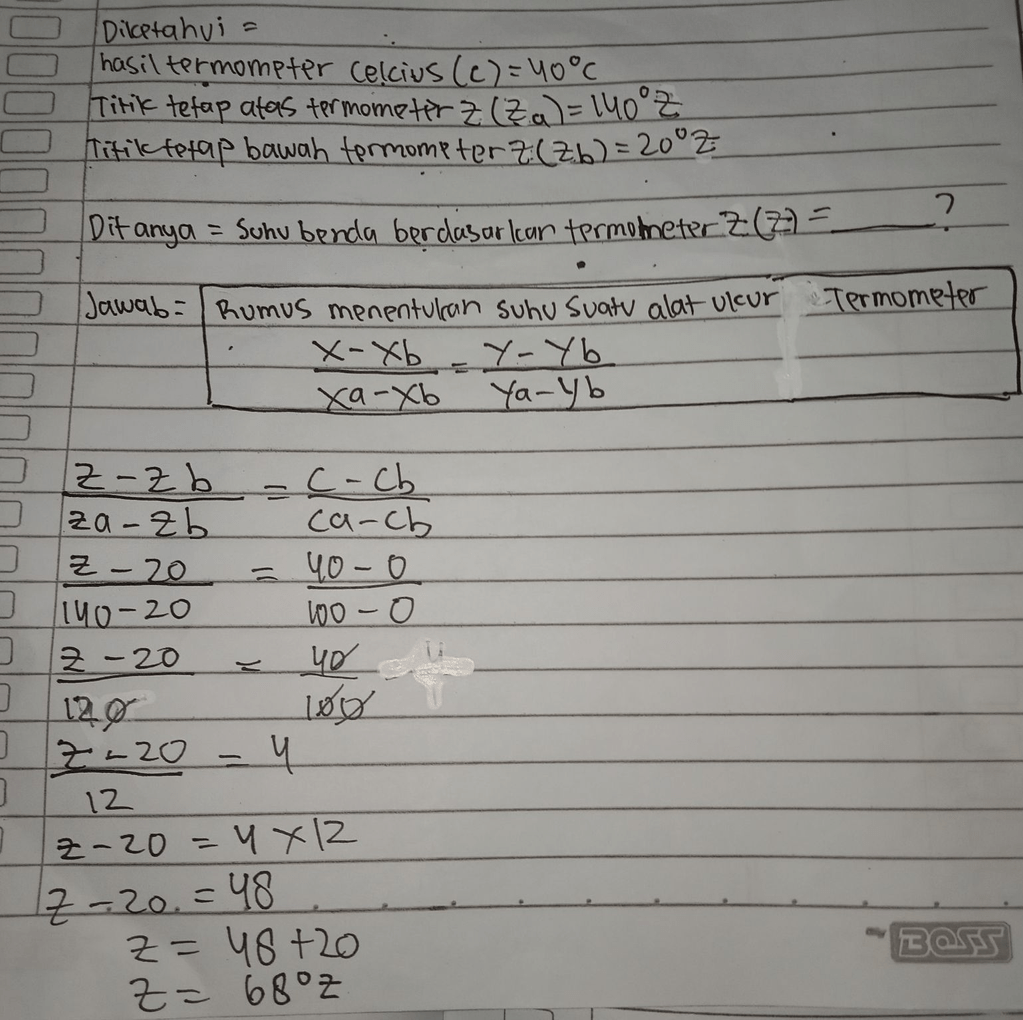 Diketahui =
hasil termometer celcius (c) = 40°C
Titik tetap atas termometer Z (Za) = 140°Z
Titik tetap bawah termometer Z (Zb) = 20°Z
Ditanya = Suhu benda berdasarkan termometer Z (Z) = ______?
Jawab = Rumus menentukan suhu suatu alat ukur Termometer
X - Xb / Xa - Xb = Y - Yb / Ya - Yb
Z - Zb / Za - Zb = C - Cb / Ca - Cb
Z - 20 / 140 - 20 = 40 - 0 / 100 - 0
Z - 20 / 120 = 40 / 100
Z - 20 / 12 = 4
Z - 20 = 4 × 12
Z - 20 = 48
Z = 48 + 20
Z = 68°Z
BOSS